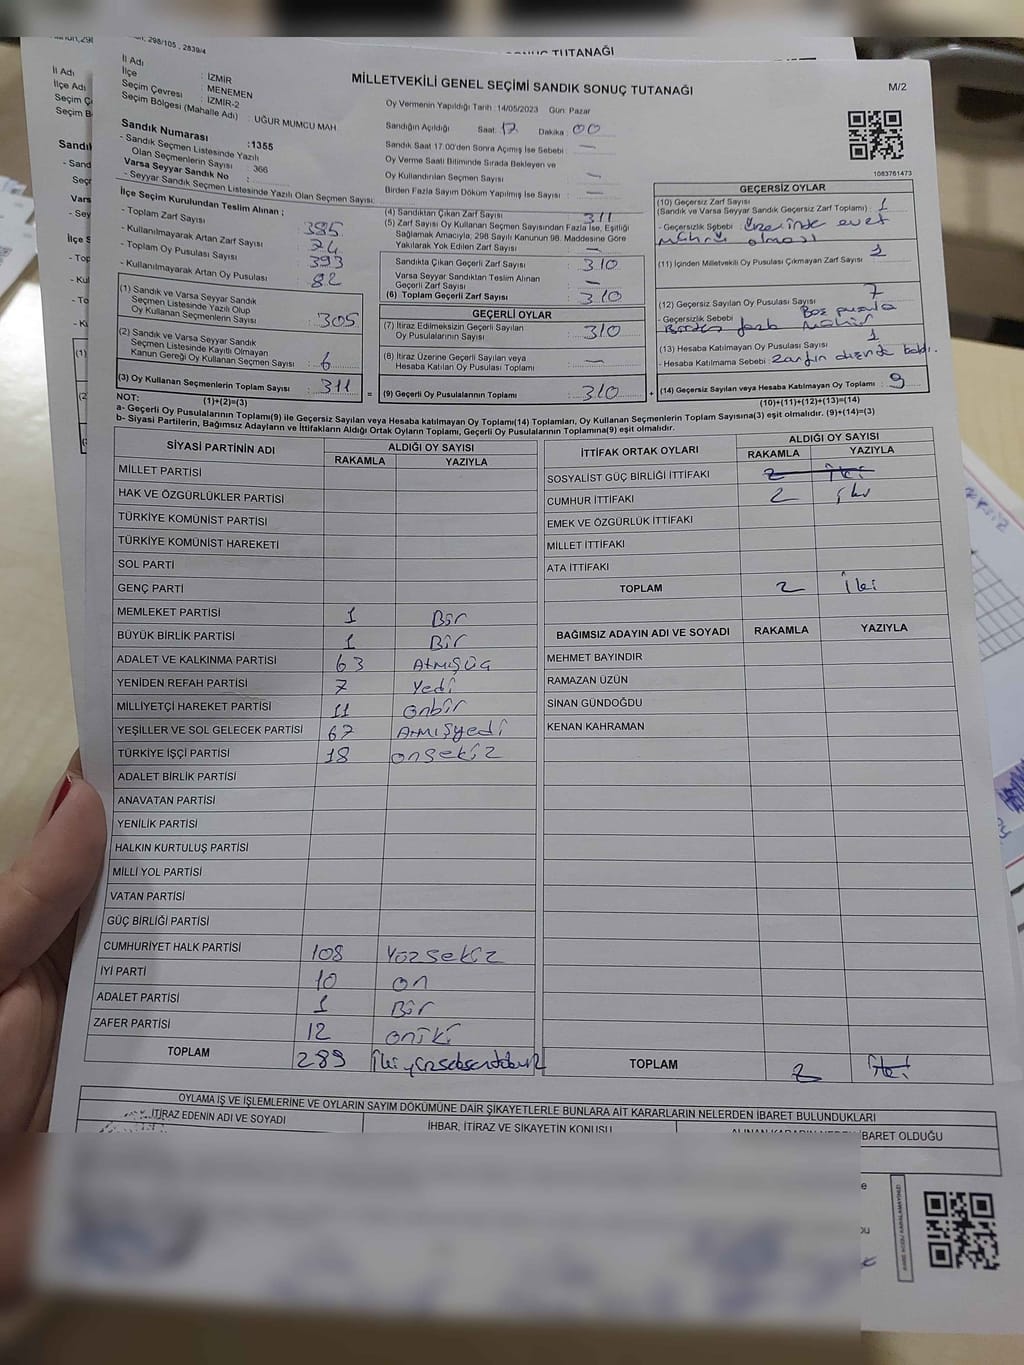 SONUÇ TUTANAĞI
298/105 , 2839/4
MİLLETVEKİLİ GENEL SEÇİMİ SANDIK SONUÇ TUTANAĞI
M/2
İl Adı : İZMİR
İlçe : MENEMEN
Seçim Çevresi : İZMİR-2
Seçim Bölgesi (Mahalle Adı) : UĞUR MUMCU MAH
Sandık Numarası :1355
- Sandık Seçmen Listesinde Yazılı
Olan Seçmenlerin Sayısı : 366
Varsa Seyyar Sandık No :
- Seyyar Sandık Seçmen Listesinde Yazılı Olan Seçmen Sayısı:
Oy Vermenin Yapıldığı Tarih :14/05/2023 Gün: Pazar
Sandığın Açıldığı Saat: 17 Dakika : 00
Sandık Saat 17.00'den Sonra Açımış İse Sebebi : —
Oy Verme Saati Bitiminde Sırada Bekleyen ve
Oy Kullandırılan Seçmen Sayısı : —
Birden Fazla Sayım Döküm Yapılmış İse Sayısı : —
1083761473
İlçe Seçim Kurulundan Teslim Alınan ;
- Toplam Zarf Sayısı : 385
- Kullanılmayarak Artan Zarf Sayısı : 74
- Toplam Oy Pusulası Sayısı : 393
- Kullanılmayarak Artan Oy Pusulası : 82
(1) Sandık ve Varsa Seyyar Sandık
Seçmen Listesinde Yazılı Olup
Oy Kullanan Seçmenlerin Sayısı : 305
(2) Sandık ve Varsa Seyyar Sandık
Seçmen Listesinde Kayıtlı Olmayan
Kanun Gereği Oy Kullanan Seçmen Sayısı : 6
(3) Oy Kullanan Seçmenlerin Toplam Sayısı : 311
(1)+(2)=(3)
(4) Sandıktan Çıkan Zarf Sayısı : 311
(5) Zarf Sayısı Oy Kullanan Seçmen Sayısından Fazla İse, Eşitliği
Sağlamak Amacıyla; 298 Sayılı Kanunun 98. Maddesine Göre
Yakılarak Yok Edilen Zarf Sayısı : —
Sandıkta Çıkan Geçerli Zarf Sayısı : 310
Varsa Seyyar Sandıktan Teslim Alınan
Geçerli Zarf Sayısı : —
(6) Toplam Geçerli Zarf Sayısı : 310
GEÇERLİ OYLAR
(7) İtiraz Edilmeksizin Geçerli Sayılan
Oy Pusulalarının Sayısı : 310
(8) İtiraz Üzerine Geçerli Sayılan veya
Hesaba Katılan Oy Pusulası Toplamı : —
= (9) Geçerli Oy Pusulalarının Toplamı : 310
GEÇERSİZ OYLAR
(10) Geçersiz Zarf Sayısı
(Sandık ve Varsa Seyyar Sandık Geçersiz Zarf Toplamı) : 1
- Geçersizlik Sebebi : üzerinde evet
mührü olması
(11) İçinden Milletvekili Oy Pusulası Çıkmayan Zarf Sayısı :
(12) Geçersiz Sayılan Oy Pusulası Sayısı : 7
- Geçersizlik Sebebi : Boş pusula
Birden fazla mühür
(13) Hesaba Katılmayan Oy Pusulası Sayısı : 1
- Hesaba Katılmama Sebebi : Zarfın dışında kaldı.
+ (14) Geçersiz Sayılan veya Hesaba Katılmayan Oy Toplamı : 9
(10)+(11)+(12)+(13)=(14)
NOT:
a- Geçerli Oy Pusulalarının Toplamı(9) ile Geçersiz Sayılan veya Hesaba katılmayan Oy Toplamı(14) Toplamları, Oy Kullanan Seçmenlerin Toplam Sayısına(3) eşit olmalıdır. (9)+(14)=(3)
b- Siyasi Partilerin, Bağımsız Adayların ve İttifakların Aldığı Ortak Oyların Toplamı, Geçerli Oy Pusulalarının Toplamına(9) eşit olmalıdır.
SİYASİ PARTİNİN ADI ALDIĞI OY SAYISI
RAKAMLA YAZIYLA
MİLLET PARTİSİ
HAK VE ÖZGÜRLÜKLER PARTİSİ
TÜRKİYE KOMÜNİST PARTİSİ
TÜRKİYE KOMÜNİST HAREKETİ
SOL PARTİ
GENÇ PARTİ
MEMLEKET PARTİSİ 1 Bir
BÜYÜK BİRLİK PARTİSİ 1 Bir
ADALET VE KALKINMA PARTİSİ 63 Atmışüç
YENİDEN REFAH PARTİSİ 7 Yedi
MİLLİYETÇİ HAREKET PARTİSİ 11 onbir
YEŞİLLER VE SOL GELECEK PARTİSİ 67 Atmışyedi
TÜRKİYE İŞÇİ PARTİSİ 18 onsekiz
ADALET BİRLİK PARTİSİ
ANAVATAN PARTİSİ
YENİLİK PARTİSİ
HALKIN KURTULUŞ PARTİSİ
MİLLİ YOL PARTİSİ
VATAN PARTİSİ
GÜÇ BİRLİĞİ PARTİSİ
CUMHURİYET HALK PARTİSİ 108 Yüzsekiz
İYİ PARTİ 10 on
ADALET PARTİSİ 1 Bir
ZAFER PARTİSİ 12 oniki
TOPLAM 289
İTTİFAK ORTAK OYLARI ALDIĞI OY SAYISI
RAKAMLA YAZIYLA
SOSYALİST GÜÇ BİRLİĞİ İTTİFAKI 2 iki
CUMHUR İTTİFAKI 2 iki
EMEK VE ÖZGÜRLÜK İTTİFAKI
MİLLET İTTİFAKI
ATA İTTİFAKI
TOPLAM 2 İki
BAĞIMSIZ ADAYIN ADI VE SOYADI RAKAMLA YAZIYLA
MEHMET BAYINDIR
RAMAZAN UZÜN
SİNAN GÜNDOĞDU
KENAN KAHRAMAN
TOPLAM 2 İki
OYLAMA İŞ VE İŞLEMLERİNE VE OYLARIN SAYIM DÖKÜMÜNE DAİR ŞİKAYETLERLE BUNLARA AİT KARARLARIN NELERDEN İBARET BULUNDUKLARI
İTİRAZ EDENİN ADI VE SOYADI
İHBAR, İTİRAZ VE ŞİKAYETİN KONUSU
İBARET OLDUĞU